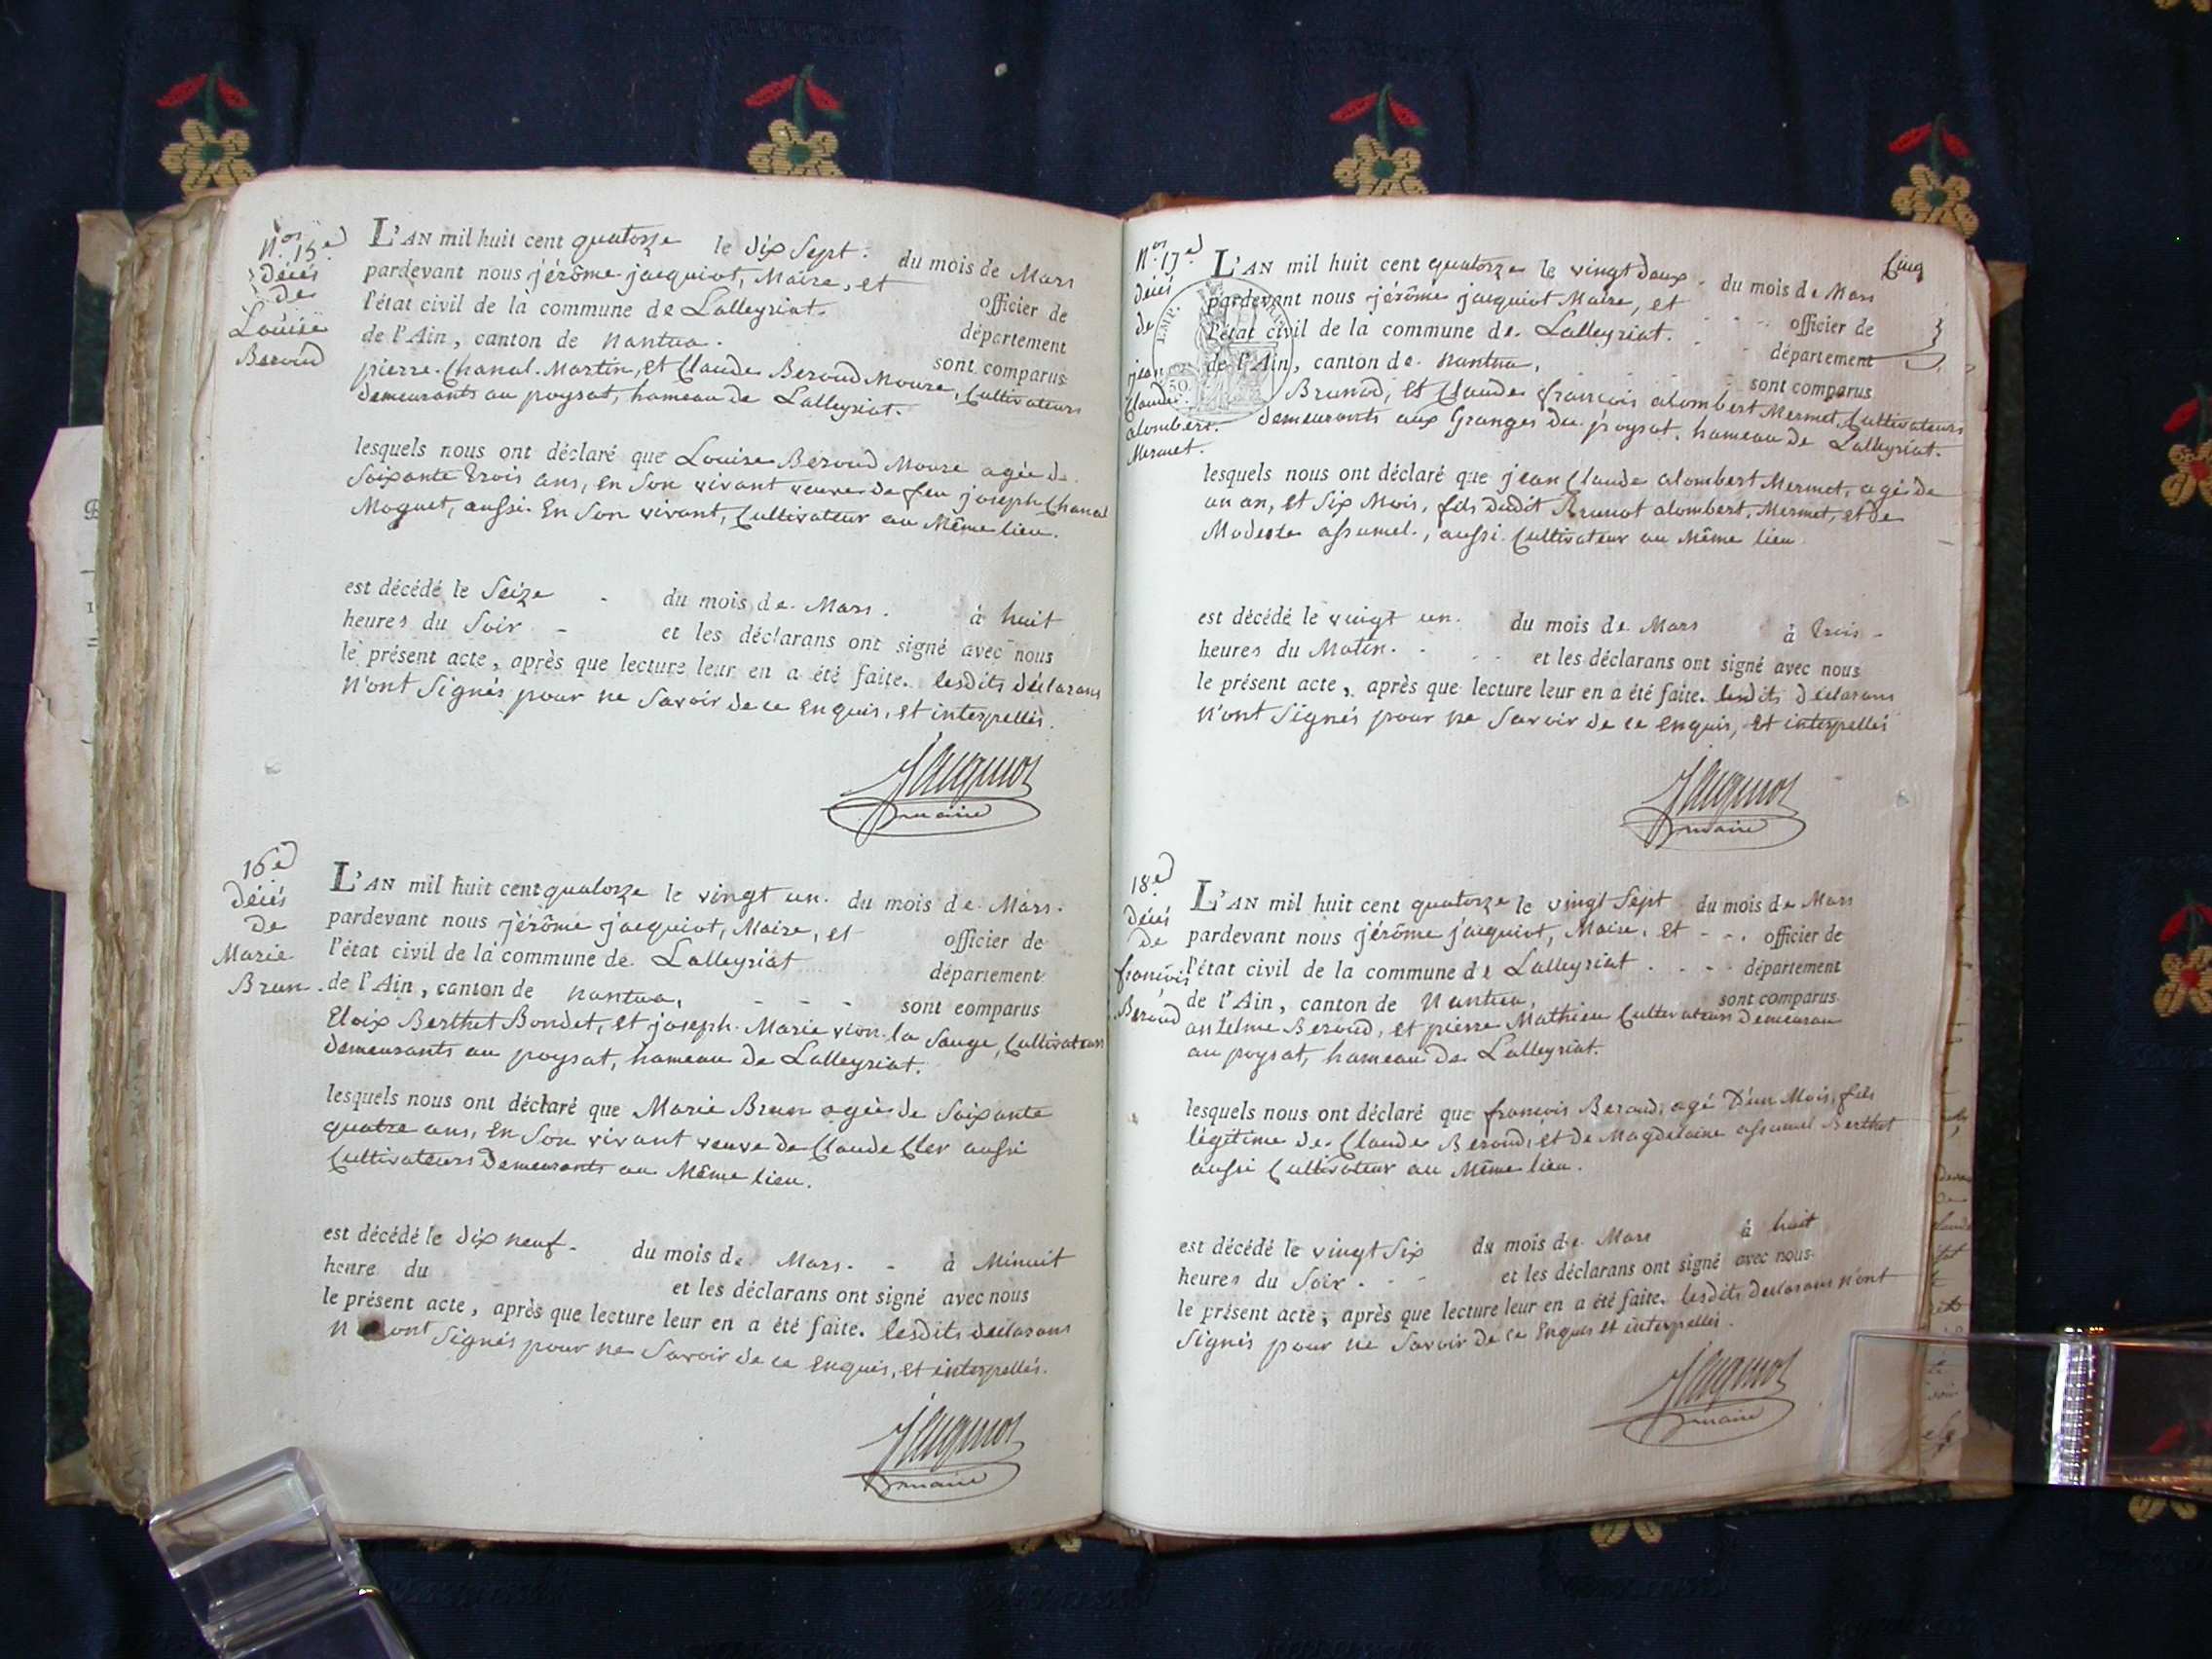 Nos. 15e
décès
de
Louise
Beroud
L'AN mil huit cent quatorze le dix Sept. du mois de Mars
pardevant nous jérôme jacquiot, Maire, et officier de
l'état civil de la commune de Lalleyriat. département
de l'Ain, canton de nantua. sont comparus
pierre Chanal Martin, et Claude Beroud Moure, Cultivateurs
demeurants au poysat, hameau de Lalleyriat.
lesquels nous ont déclaré que Louise Beroud Moure agée de
Soixante trois ans, en Son vivant veuve de feu joseph Chanal
Moguet, aussi en Son vivant, Cultivateur au Même lieu.
est décédé le Seize du mois de Mars. à huit
heures du Soir et les déclarans ont signé avec nous
le présent acte, après que lecture leur en a été faite. lesdits déclarans
n'ont Signés pour ne Savoir de ce enquis, et interpellés.
Jacquiot
maire
16e
décès
de
Marie
Brun
L'AN mil huit cent quatorze le vingt un. du mois de Mars.
pardevant nous jérôme jacquiot, Maire, et officier de
l'état civil de la commune de Lalleyriat département
de l'Ain, canton de nantua, sont comparus
Eloix Berthet Bondet, et joseph Marie vion la Sauge, Cultivateurs
demeurants au poysat, hameau de Lalleyriat.
lesquels nous ont déclaré que Marie Brun agée de Soixante
quatre ans, en Son vivant veuve de Claude Cler aussi
Cultivateurs demeurants au Même lieu.
est décédé le dix neuf. du mois de Mars. à Minuit
heure du et les déclarans ont signé avec nous
le présent acte, après que lecture leur en a été faite. lesdits déclarans
n'ont Signés pour ne Savoir de ce enquis, et interpellés.
Jacquiot
maire
Cinq
Nos. 17e
décès
de
jean
Claude
alombert
Mermet.
L'AN mil huit cent quatorze le vingt deux du mois de Mars
pardevant nous jérôme jacquiot Maire, et officier de
l'état civil de la commune de Lalleyriat. département
de l'Ain, canton de nantua, sont comparus
Brunod, et Claude françois alombert Mermet, Cultivateurs
demeurants aux Granges du poysat, hameau de Lalleyriat.
lesquels nous ont déclaré que jean Claude alombert Mermet, agé de
un an, et Six Mois, fils dudit Brunot alombert Mermet, et de
Modeste assumel, aussi Cultivateur au Même lieu
est décédé le vingt un. du mois de Mars à trois
heures du Matin. et les déclarans ont signé avec nous
le présent acte, après que lecture leur en a été faite. lesdits déclarans
n'ont Signés pour ne Savoir de ce enquis, et interpellés
Jacquiot
maire
18e
décès
de
françois
Beroud
L'AN mil huit cent quatorze le vingt Sept du mois de Mars
pardevant nous jérôme jacquiot, Maire, et officier de
l'état civil de la commune de Lalleyriat département
de l'Ain, canton de Nantua, sont comparus
antelme Beroud, et pierre Mathieu Cultivateurs demeurans
au poysat, hameau de Lalleyriat.
lesquels nous ont déclaré que françois Beroud, agé d'un Mois, fils
légitime de Claude Beroud, et de Magdelaine assumel Berthet
aussi Cultivateur au Même lieu.
est décédé le vingt Six du mois de Mars à huit
heures du Soir. et les déclarans ont signé avec nous
le présent acte, après que lecture leur en a été faite. lesdits déclarans n'ont
Signés pour ne Savoir de ce enquis et interpellés.
Jacquiot
maire